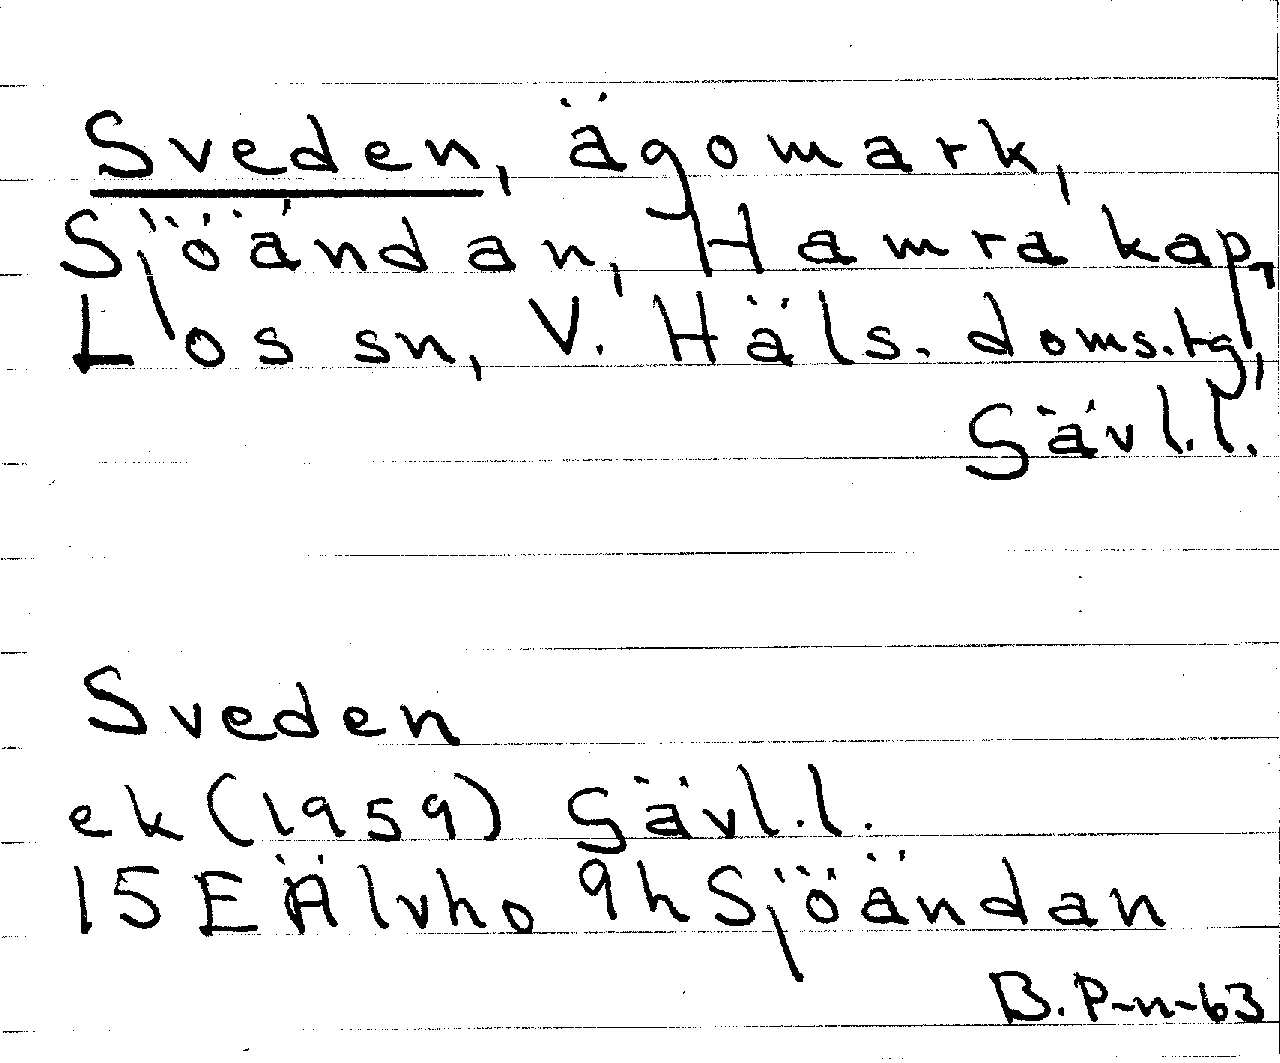 Sveden, ägomark,
Sjöändan, Hamra kap,
Los sn, V. Häls. doms.tg,
Gävl.l.
Sveden
ek (1959) Gävl.l.
15 E Älvho 9h Sjöändan
B. P-n-63